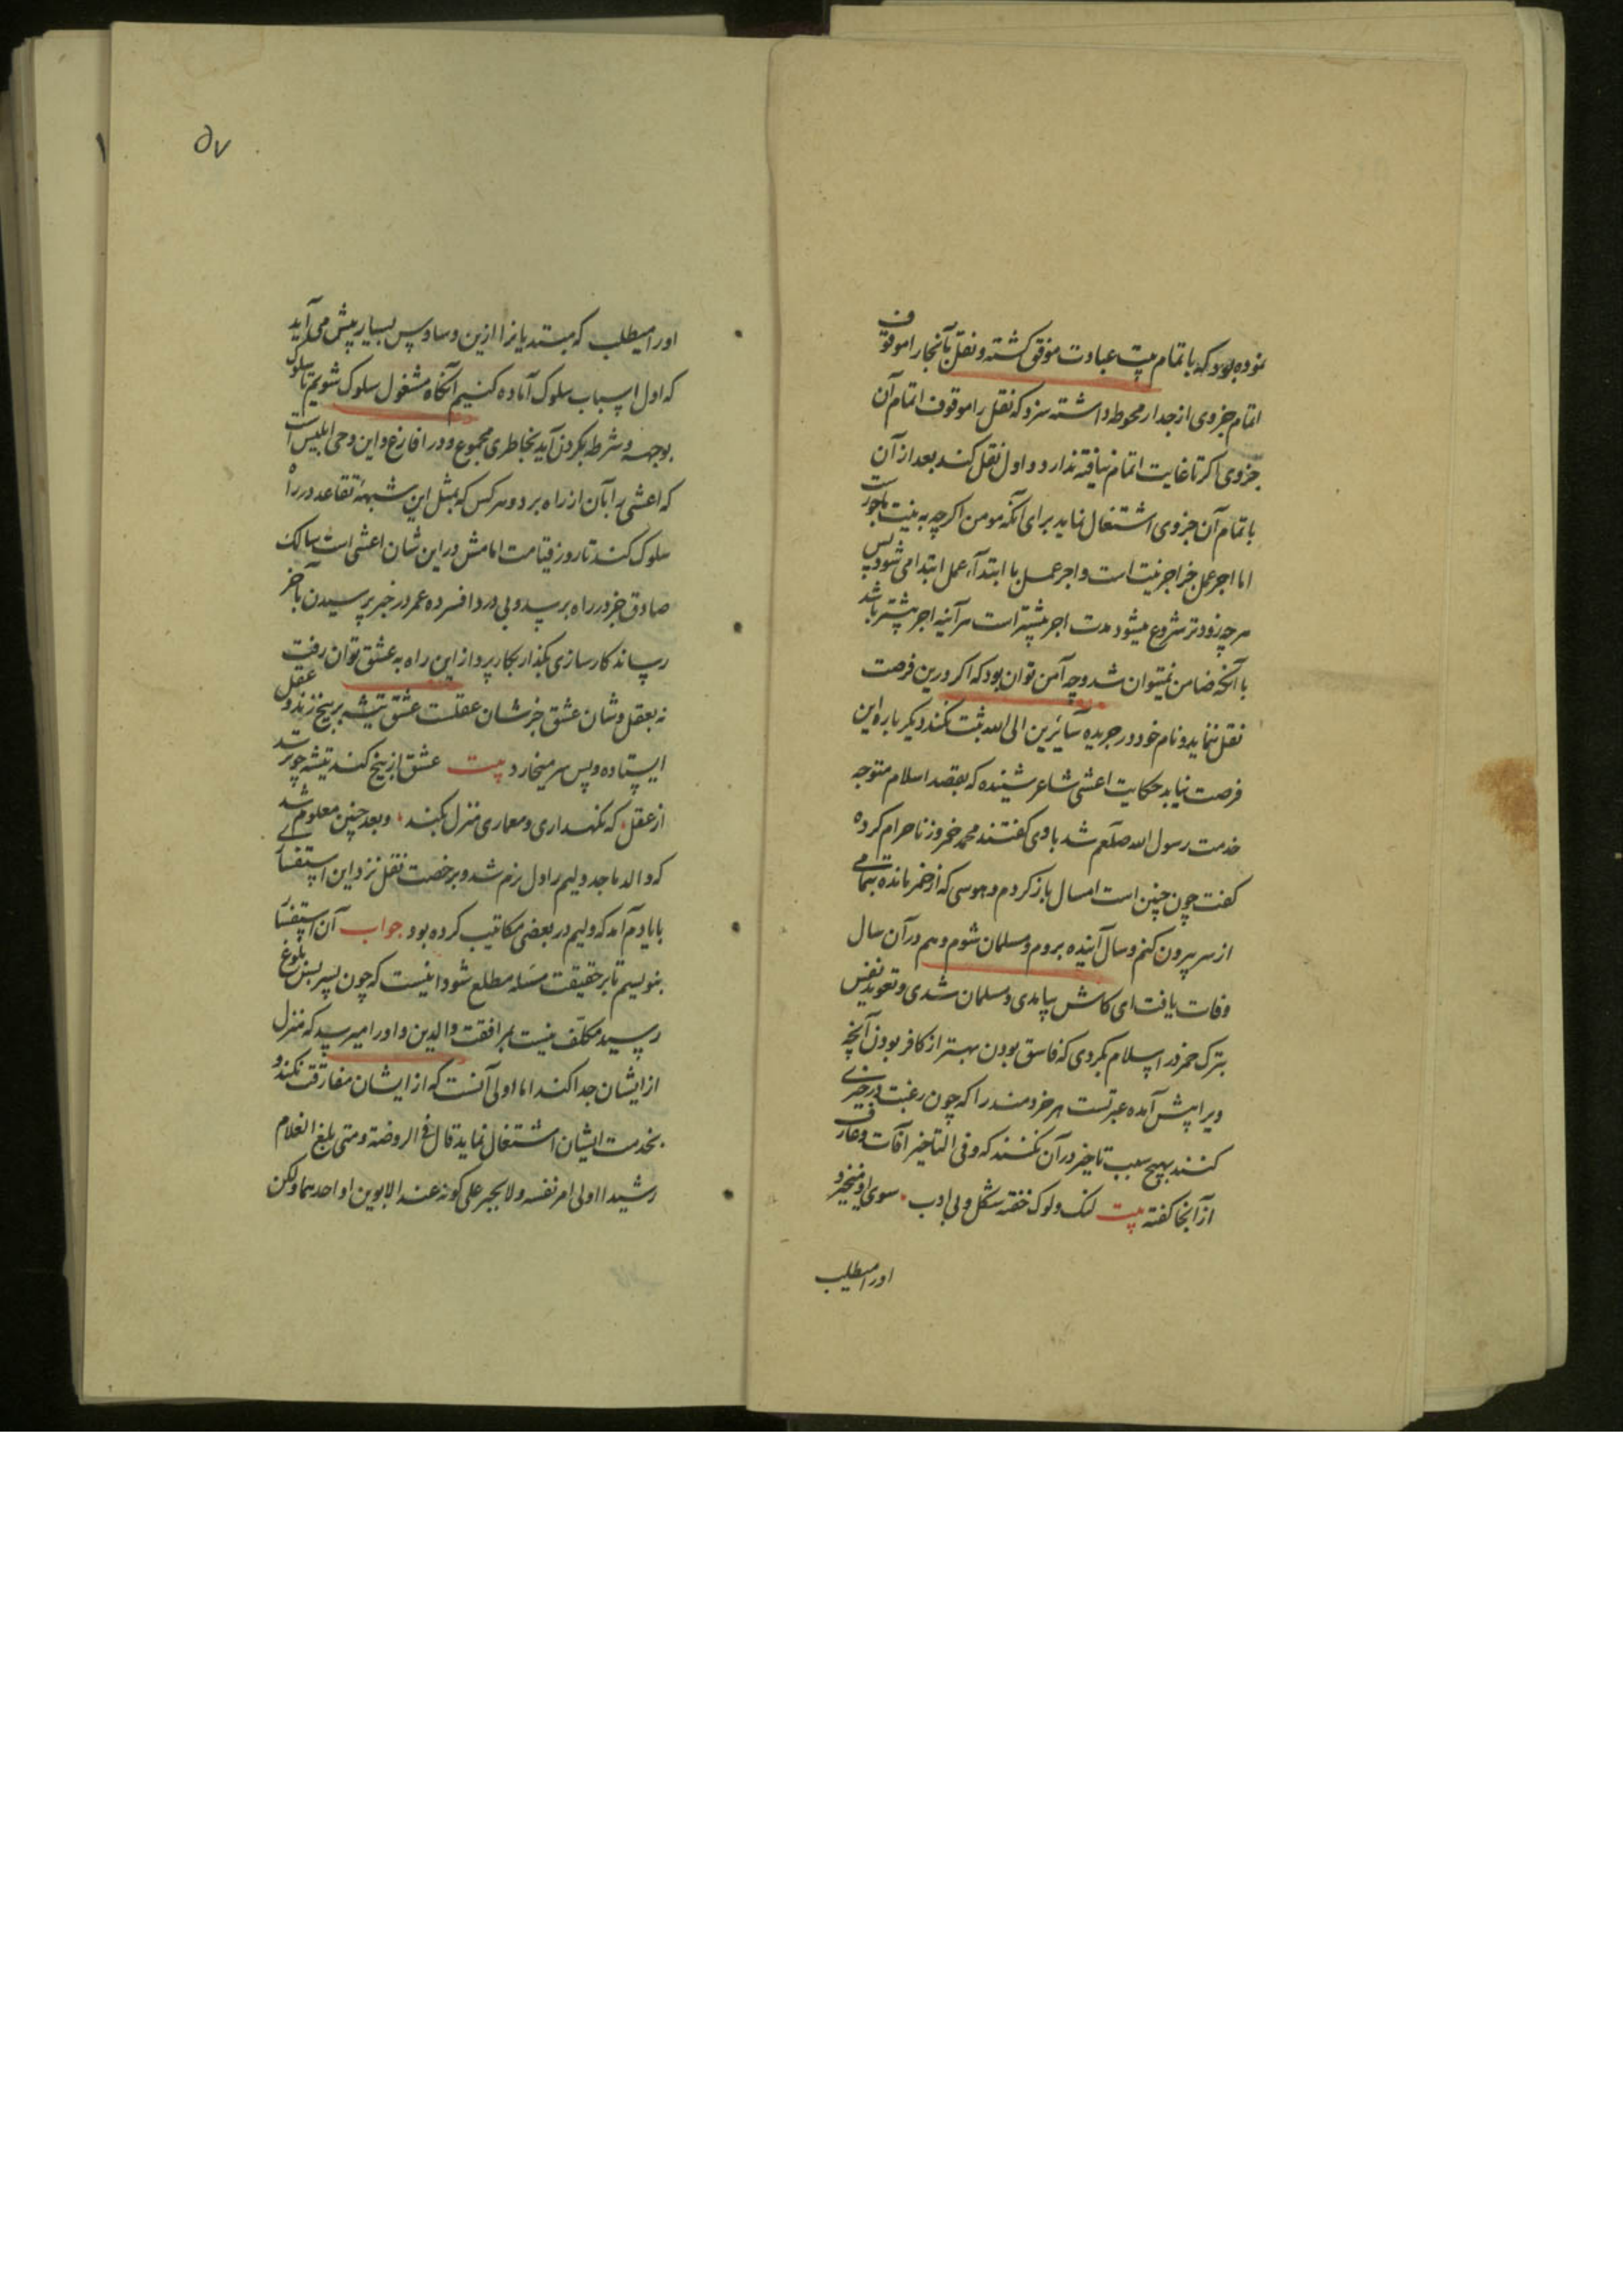 نموده بود که باتمام بیت عبادت موفق کشته و نقل بآنجا را موقوف
اتمام جزوی از جدار محوطه داشته سزد که نقل را موقوف اتمام آن
جزوی کر تا غایت اتمام نیافته ندارد و اول نقل کند بعد از آن
باتمام آن جزوی اشتغال نماید برای آنکه مومن اکرچه به نیت ماجورست
اما اجر عمل جز اجر نیت است و اجر عمل با ابتداء عمل ابتدا می شود پس
هرچه زودتر شروع میشود مدت اجر بیشتر است هر آینه اجر بیشتر باشد
با آنکه ضامن نمیتوان شد و چه آمن توان بود که اکر درین فرصت
نقل ننماید و نام خود در جریده سایرین الی الله ثبت نکند دیکر باره این
فرصت نیابد حکایت اعشی شاعر شنیده که بقصد اسلام متوجه
خدمت رسول الله صلعم شد با وی کفتند محمد خمر و زنا حرام کرده
کفت چون چنین است امسال باز کردم و هوسی که از خمر مانده بتمامی
از سر بیرون کنم و سال آینده بروم و مسلمان شوم و هم در آن سال
وفات یافت ای کاش بیامدی و مسلمان شدی و تعوید نفس
بترک خمر در اسلام بکردی که فاسق بودن بهتر از کافر بودن آنچه
ویرا پیش آمده عبرتست هر خردمند را که چون رغبت در خیری
کنند بهیچ سبب تاخیر در آن نکنند که و فی التاخیر آفات و عارف
از آنجا کفته بیت لنک و لوک خفته شکل و بی ادب سوی او میغیژ و
اورا میطلب
۵۷
اورا میطلب که مبتدیانرا ازین وساوس بسیار پیش می آید
که اول اسباب سلوک آماده کنیم آنکاه مشغول سلوک شویم تا سلوک
بوجه و شرط بکردن آید بخاطری مجموع و دل فارغ و این وحی ابلیس است
که اعشی را بآن از راه برد و هر کس که بمثل این شبهه تقاعد در راه
سلوک کند تا روز قیامت امامش در این شان اعشی است سالک
صادق خبر در راه برسد و بی درد افسرده عمر در خبر پرسیدن بآخر
رساند کارسازی بکذار بکار پرداز این راه به عشق توان رفت
نه بعقل و شان عشق جز شان عقلست عشق تیشه بر بیخ زند و عقل
ایستاده و پس سر میخارد بیت عشق از بیخ کند تیشه چو برسد
از عقل که نکهداری و معماری منزل بکند و بعد چنین معلوم شد
که والد ماجد ولیم را دل نرم شد و برخصت نقل نزد این استفتا
بایادم آمد که ولیم در بعضی مکاتیب کرده بود جواب آن استفتا
بنویسیم تا بر حقیقت مسئله مطلع شود اینست که چون پسر بسن بلوغ
رسید مکلف نیست بمرافقت والدین و اورا میرسد که منزل
از ایشان جدا کند اما اولی آنست که از ایشان مفارقت نکند و
بخدمت ایشان اشتغال نماید قال فی الروضة و متی بلغ الغلام
رشیدا اولی امر نفسه ولا یجبر علی کونه عند الابوین او احدهما ولکن